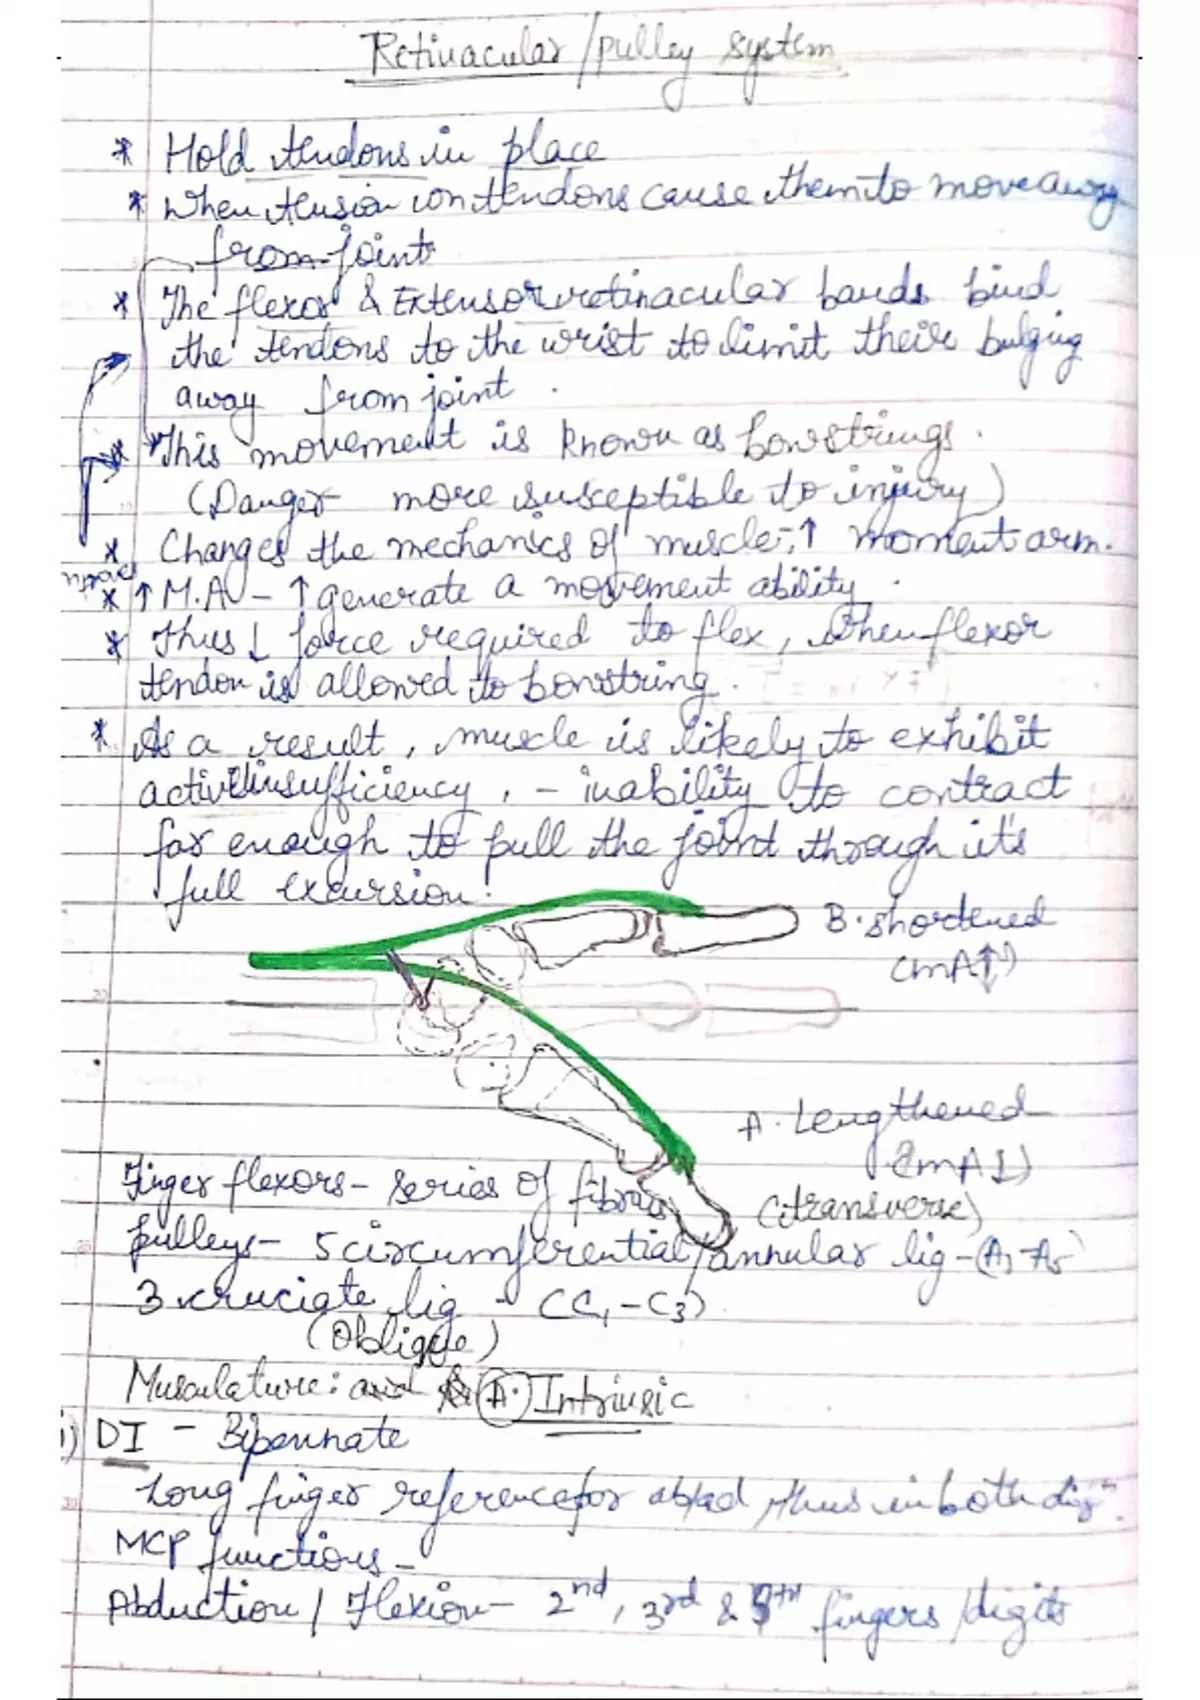 Retinacular/pulley system
* Hold tendons in place
* When tension on tendons cause them to move away
from joint
* The flexor & Extensor retinacular bands bind
the tendons to the wrist to limit their bulging
away from joint.
* This movement is known as bowstrings.
(Danger- more susceptible to injury)
* Changes the mechanics of muscle, ↑ moment arm.
* ↑ M.A - ↑ generate a movement ability.
* Thus ↓ force required to flex, when flexor
tendon is allowed to bowstring.
* As a result, muscle is likely to exhibit
active insufficiency, - inability to contract
far enough to pull the joint through it's
full excursion.
B. shortened
(mA↑)
A. Lengthened
(mA↓)
Finger flexors- series of fibrous (transverse)
pulleys- 5 circumferential/annular lig-(A1-A5
3 cruciate lig - (C1-C3)
(Oblique)
Musculature: A. Intrinsic
i) DI - Bipennate
Long finger reference for ab/ad, thus in both dirn.
MCP functions-
Abduction / Flexion- 2nd, 3rd & fingers/digits